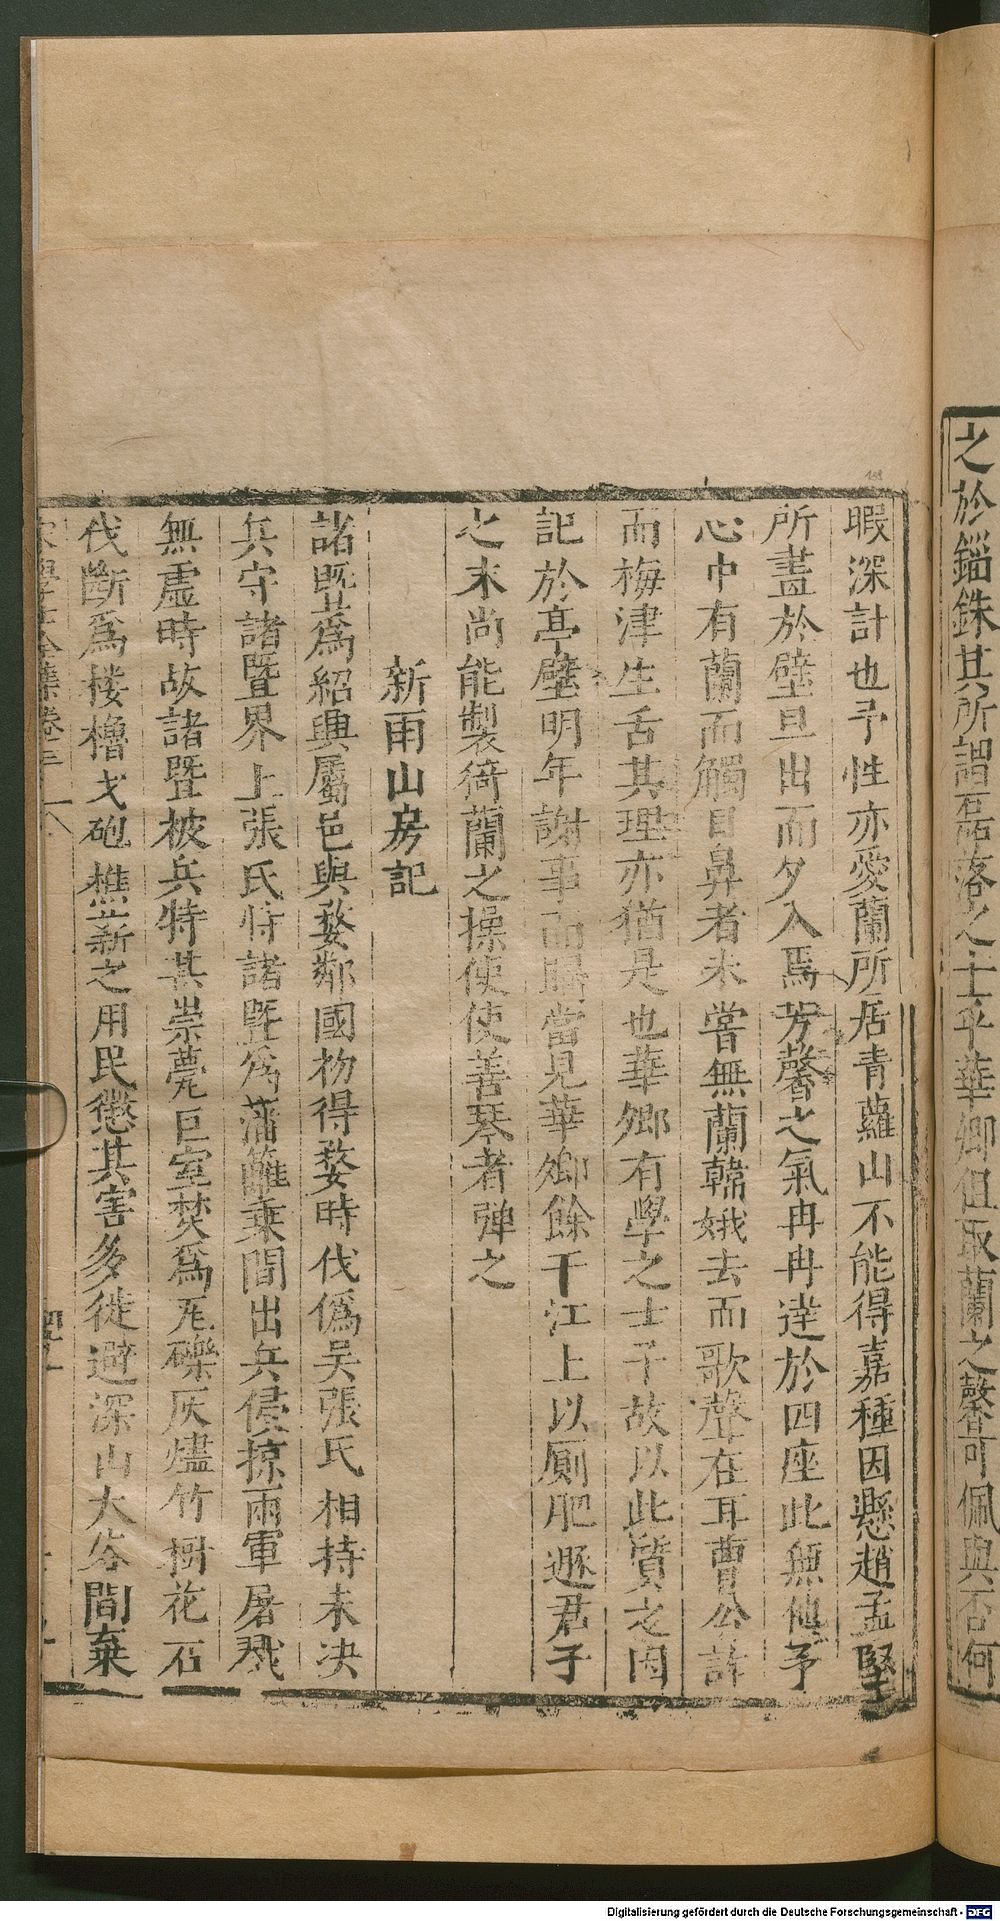 之於錙銖其所謂磊落之士乎華卿但取蘭之馨可佩與否何
暇深計也予性亦愛蘭所居青蘿山不能得嘉種因懸趙孟堅
所畫於壁旦出而夕入焉芳馨之氣冉冉達於四座此無他予
心中有蘭而觸目鼻者未嘗無蘭韓娥去而歌聲在耳曹公詐
而梅津生舌其理亦猶是也華卿有學之士予故以此質之因
記於亭壁明年謝事而歸當見華卿餘干江上以廁肥遯君子
之末尚能製猗蘭之操使使善琴者彈之
新雨山房記
諸暨為紹興屬邑與婺鄰國初得婺時伐偽吳張氏相持未決
兵守諸暨界上張氏恃諸暨為藩籬乗間出兵侵掠兩軍屠戮
無虛時故諸暨被兵特甚崇甍巨室焚為瓦礫灰燼竹樹花石
伐斷為楼櫓戈砲樵薪之用民懲其害多徙避深山大谷間棄
宋學士全集卷三
Digitalisierung gefördert durch die Deutsche Forschungsgemeinschaft - DFG